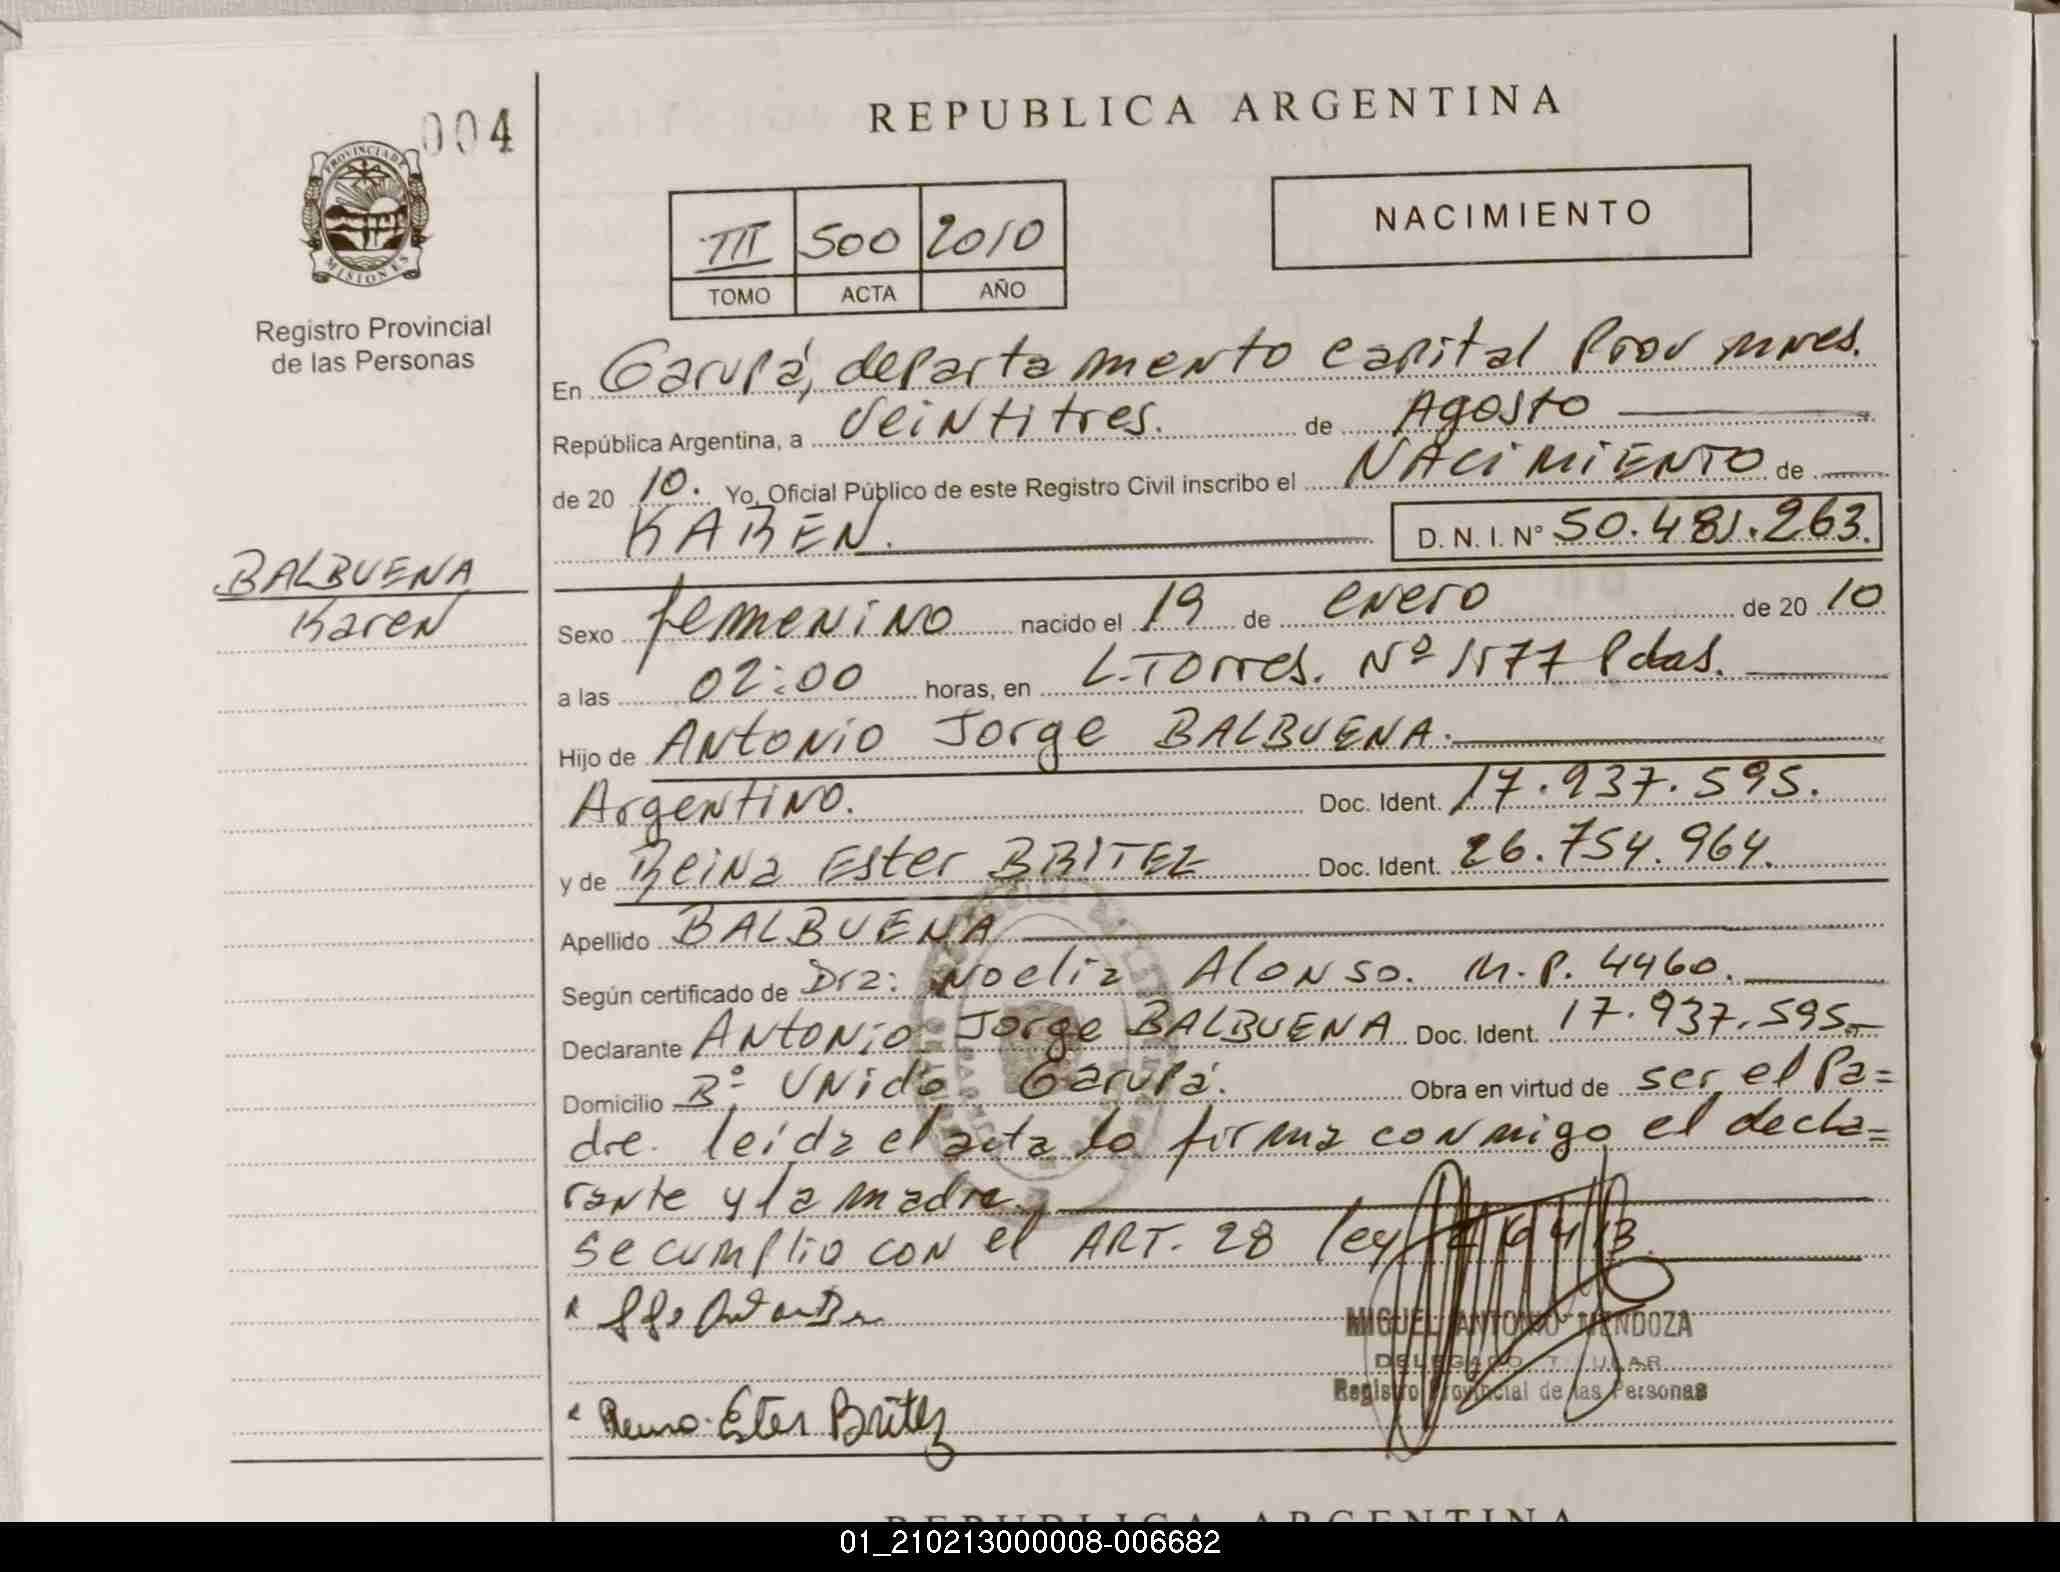 004
PROVINCIA DE
MISIONES
Registro Provincial
de las Personas
BALBUENA
Karen
REPUBLICA ARGENTINA
III 500 2010
TOMO ACTA AÑO
NACIMIENTO
En Garupá, departamento capital Prov mnes.
República Argentina, a veintitres. de Agosto
de 20 10. Yo, Oficial Público de este Registro Civil inscribo el NACIMIENTO de
KAREN. D. N. I. N° 50.481.263.
Sexo femenino nacido el 19 de enero de 20 10
a las 02:00 horas, en L. Torres. Nº 1577 Pdas.
Hijo de Antonio Jorge BALBUENA.
Argentino. Doc. Ident. 17.937.595.
y de Reina Ester BRITEZ Doc. Ident. 26.754.964.
Apellido BALBUENA
Según certificado de Dra: Noelia Alonso. M.P. 4460.
Declarante Antonio Jorge BALBUENA Doc. Ident. 17.937.595.
Domicilio Bº Unido Garupá. Obra en virtud de ser el Pa=
dre. leida el acta la firma conmigo el decla=
rante y la madre.
se cumplio con el ART. 28 ley
MIGUEL ANTONIO MENDOZA
DELEGADO TITULAR
Registro Provincial de las Personas
Ester Britez
REPUBLICA ARGENTINA
01_210213000008-006682